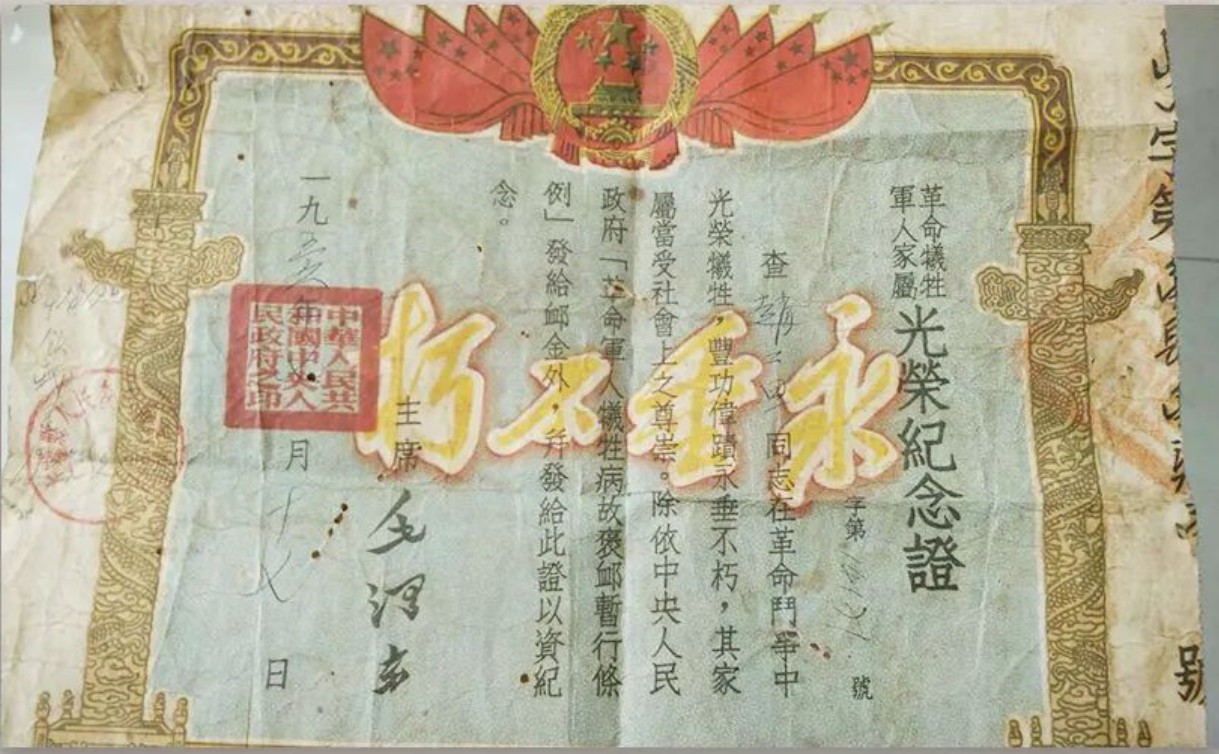 革命犧牲
軍人家屬
光榮紀念證
字第
號
查趙
同志在革命鬥爭中
光榮犧牲，豐功偉蹟永垂不朽，其家
屬當受社會上之尊崇。除依中央人民
政府「革命軍人犧牲病故褒卹暫行條
例」發給卹金外，并發給此證以資紀
念。
主席毛澤东
一九五 年 月十 日
中華人民共
和國中央人
民政府之印
永垂不朽
字第
號